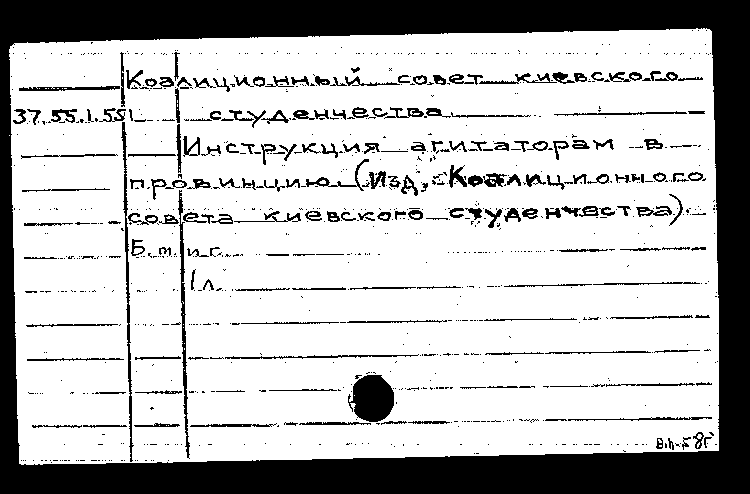 Коалиционный совет киевского
37.55.1.551 студенчества
Инструкция агитаторам в
провинцию. (Изд. Коалиционного
совета киевского студенчества).
Б.м. и г.
1 л.